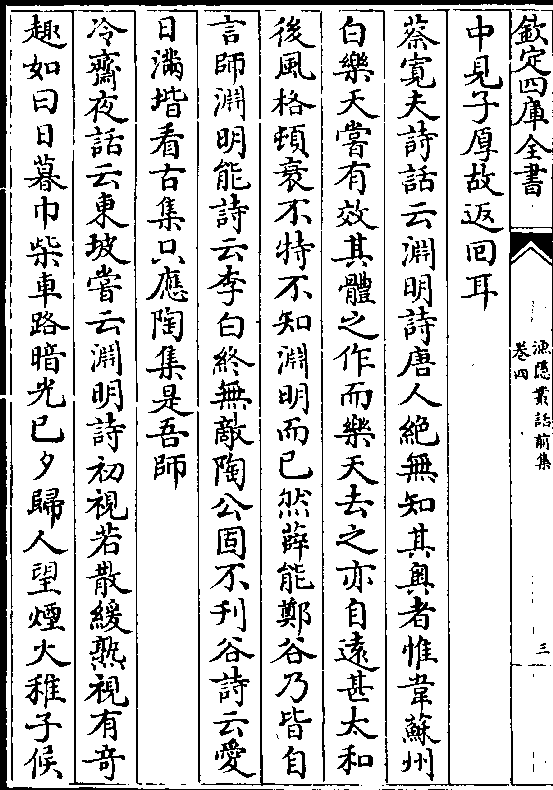 欽定四庫全書
漁隱叢話前集
卷四
三
中見子厚故返回耳
蔡寬夫詩話云淵明詩唐人絶無知其奥者惟韋蘇州
白樂天嘗有效其體之作而樂天去之亦自遠甚太和
後風格頓衰不特不知淵明而已然薛能鄭谷乃皆自
言師淵明能詩云李白終無敵陶公固不刋谷詩云愛
日滿堦看古集只應陶集是吾師
冷齋夜話云東坡嘗云淵明詩初視若散緩熟視有竒
趣如曰日暮巾柴車路暗光已夕歸人望煙火稚子候